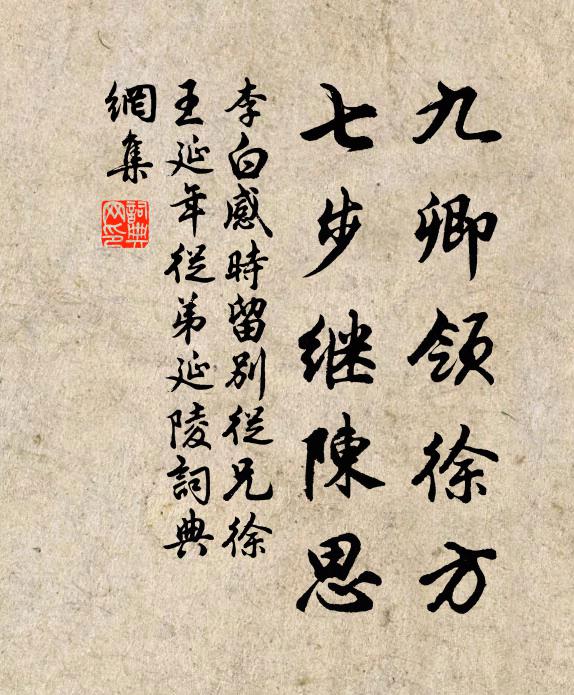 九卿領徐方
七步继陳思
李白感時留别從兄徐
王延年從弟延陵詞典
網集
詞典
网印